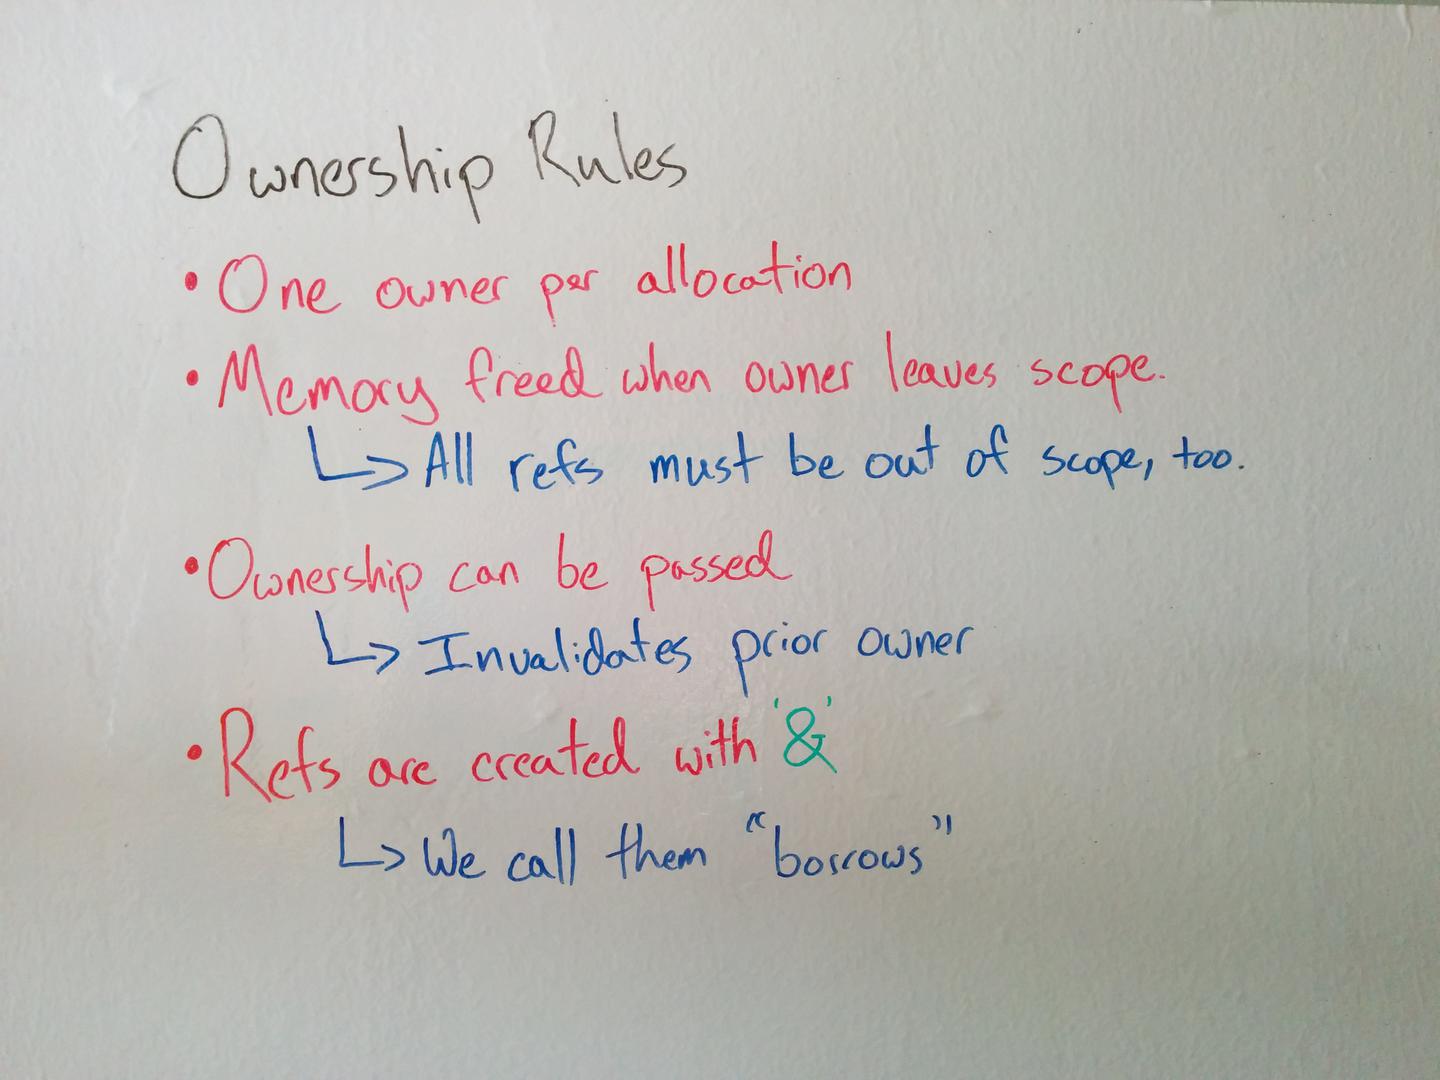 Ownership Rules
• One owner per allocation
• Memory freed when owner leaves scope.
↳ All refs must be out of scope, too.
• Ownership can be passed
↳ Invalidates prior owner
• Refs are created with '&'
↳ We call them "borrows"